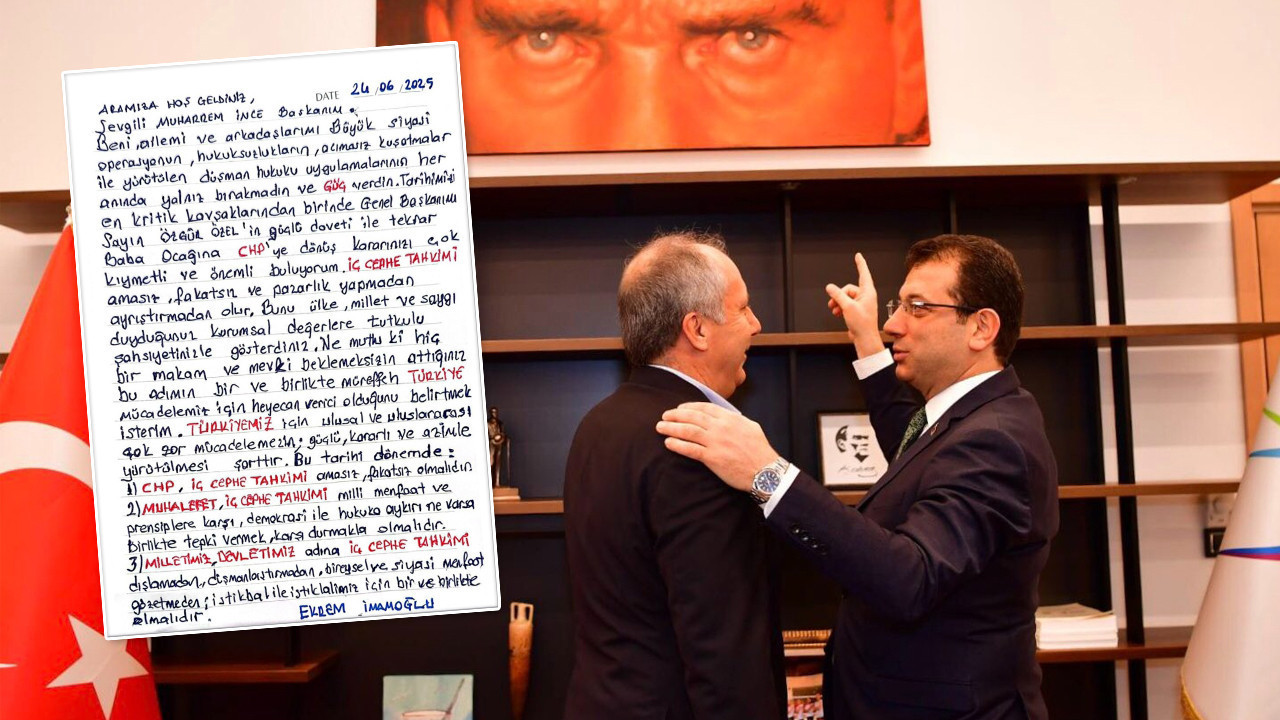 ARAMIZA HOŞ GELDİNİZ,
DATE 24/06/2025
Sevgili MUHARREM İNCE Başkanım.
Beni, ailemi ve arkadaşlarımı Büyük siyasi
operasyonun, hukuksuzlukların, acımasız kuşatmalar
ile yürütülen düşman hukuku uygulamalarının her
anında yalnız bırakmadın ve GÜÇ verdin. Tarihimizi
en kritik kavşaklarından birinde Genel Başkanım
Sayın ÖZGÜR ÖZEL'in güçlü daveti ile tekrar
Baba Ocağına CHP'ye dönüş kararınızı çok
kıymetli ve önemli buluyorum. İÇ CEPHE TAHKİMİ
amasız, fakatsız ve pazarlık yapmadan
ayrıştırmadan olur, Bunu ülke, millet ve saygı
duyduğunuz kurumsal değerlere tutkulu
şahsiyetinizle gösterdiniz. Ne mutlu ki hiç
bir makam ve mevki beklemeksizin attığınız
bu adımın bir ve birlikte müreffeh TÜRKİYE
mücadelemiz için heyecan verici olduğunu belirtmek
isterim. TÜRKİYEMİZ için ulusal ve uluslararası
çok zor mücadelemezin; güçlü, kararlı ve azimle
yürütülmesi şarttır. Bu tarihi dönemde:
1) CHP, İÇ CEPHE TAHKİMİ amasız, fakatsız olmalıdır
2) MUHALEFET, İÇ CEPHE TAHKİMİ milli menfaat ve
prensiplere karşı, demokrasi ile hukuka aykırı ne varsa
birlikte tepki vermek, karşı durmakla olmalıdır.
3) MİLLETİMİZ, DEVLETİMİZ adına İÇ CEPHE TAHKİMİ
dışlamadan, düşmanlaştırmadan, bireysel ve siyasi menfaat
gözetmeden; istikbal ile istiklalimiz için bir ve birlikte
olmalıdır.
EKREM İMAMOĞLU